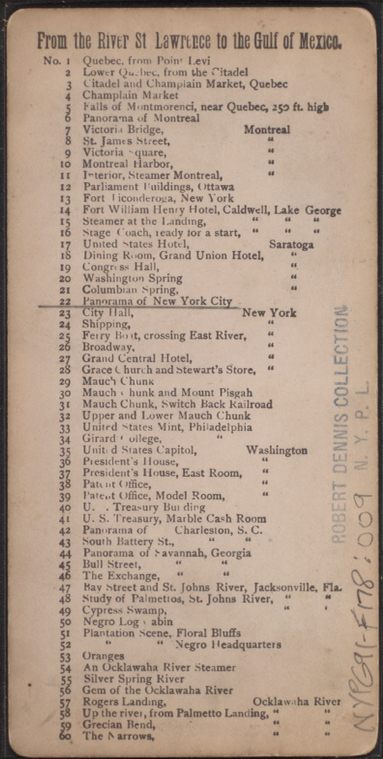 From the River St Lawrence to the Gulf of Mexico.
No. 1 Quebec, from Point Levi
2 Lower Quebec, from the Citadel
3 Citadel and Champlain Market, Quebec
4 Champlain Market
5 Falls of Montmorenci, near Quebec, 250 ft. high
6 Panorama of Montreal
7 Victoria Bridge, Montreal
8 St. James Street, "
9 Victoria Square, "
10 Montreal Harbor, "
11 Interior, Steamer Montreal, "
12 Parliament Buildings, Ottawa
13 Fort Ticonderoga, New York
14 Fort William Henry Hotel, Caldwell, Lake George
15 Steamer at the Landing, " " "
16 Stage Coach, ready for a start, " " "
17 United States Hotel, Saratoga
18 Dining Room, Grand Union Hotel, "
19 Congress Hall, "
20 Washington Spring "
21 Columbian Spring, "
22 Panorama of New York City
23 City Hall, New York
24 Shipping, "
25 Ferry Boat, crossing East River, "
26 Broadway, "
27 Grand Central Hotel, "
28 Grace Church and Stewart's Store, "
29 Mauch Chunk
30 Mauch Chunk and Mount Pisgah
31 Mauch Chunk, Switch Back Railroad
32 Upper and Lower Mauch Chunk
33 United States Mint, Philadelphia
34 Girard College, "
35 United States Capitol, Washington
36 President's House, "
37 President's House, East Room, "
38 Patent Office, "
39 Patent Office, Model Room, "
40 U. S. Treasury Building
41 U. S. Treasury, Marble Cash Room
42 Panorama of Charleston, S. C.
43 South Battery St., " "
44 Panorama of Savannah, Georgia
45 Bull Street, " "
46 The Exchange, " "
47 Bay Street and St. Johns River, Jacksonville, Fla.
48 Study of Palmettos, St. Johns River, " "
49 Cypress Swamp, " "
50 Negro Log Cabin
51 Plantation Scene, Floral Bluffs
52 " " Negro Headquarters
53 Oranges
54 An Ocklawaha River Steamer
55 Silver Spring River
56 Gem of the Ocklawaha River
57 Rogers Landing, Ocklawaha River
58 Up the river, from Palmetto Landing, " "
59 Grecian Bend, " "
60 The Narrows, " "
ROBERT DENNIS COLLECTION
N. Y. P. L.
NYPG91-F178:009